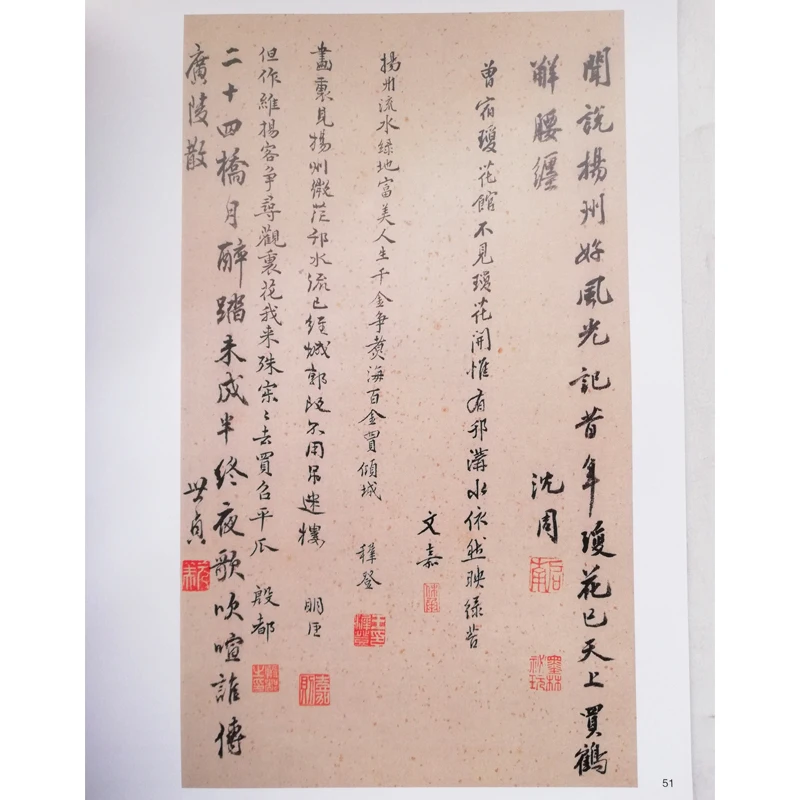 聞説揚州好風光記昔年瓊花已天上買鶴
解腰纏
沈周
曾宿瓊花館不見瓊花開惟有邗溝水依然映緑苔
文嘉
揚州流水緑地富美人生千金争賣海百金買傾城
穉登
畫裏見揚州微茫邗水流已經城郭既不用吊迷樓
明臣
但作維揚客争尋觀裏花我来殊寀〻去買召平瓜
殷都
二十四橋月醉踏未成半終夜歌吹喧誰傳
廣陵散
世貞
51